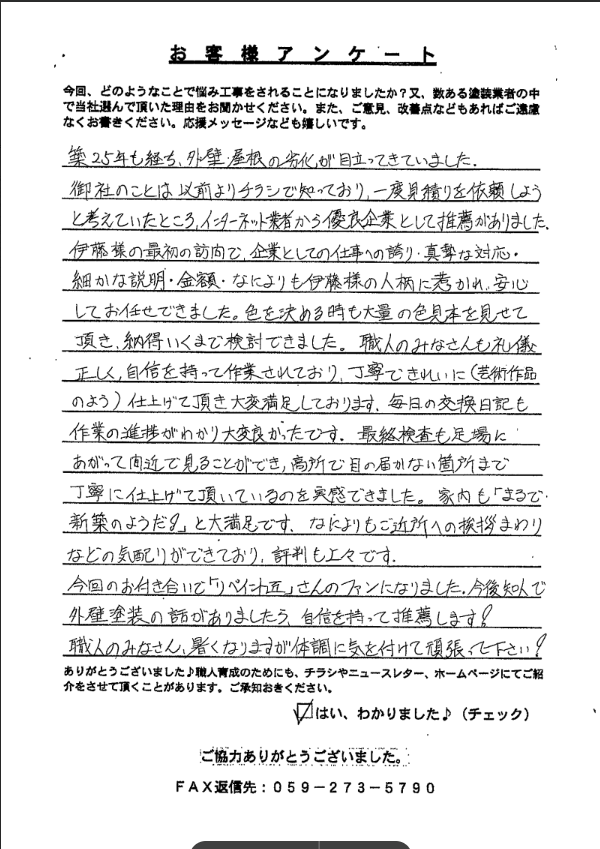 お客様アンケート
今回、どのようなことで悩み工事をされることになりましたか？又、数ある塗装業者の中
で当社選んで頂いた理由をお聞かせください。また、ご意見、改善点などもあればご遠慮
なくお書きください。応援メッセージなども嬉しいです。
築25年も経ち、外壁・屋根の劣化が目立ってきていました。
御社のことは以前よりチラシで知っており、一度見積りを依頼しよう
と考えていたところ、インターネット業者から優良企業として推薦がありました。
伊藤様の最初の訪問で、企業としての仕事への誇り・真摯な対応・
細かな説明・金額・なによりも伊藤様の人柄に惹かれ、安心
してお任せできました。色を決める時も大量の色見本を見せて
頂き、納得いくまで検討できました。職人のみなさんも礼儀
正しく、自信を持って作業されており、丁寧できれいに（芸術作品
のよう）仕上げて頂き大変満足しております。毎日の交換日記も
作業の進捗がわかり大変良かったです。最終検査も足場に
あがって間近で見ることができ、高所で目の届かない箇所まで
丁寧に仕上げて頂いているのを実感できました。家内も「まるで
新築のようだ！」と大満足です。なによりもご近所への挨拶まわり
などの気配りができており、評判も上々です。
今回のお付き合いで「リペイント匠」さんのファンになりました。今後知人で
外壁塗装の話がありましたら、自信を持って推薦します！
職人のみなさん、暑くなりますが体調に気を付けて頑張って下さい！
ありがとうございました♪職人育成のためにも、チラシやニュースレター、ホームページにてご紹
介をさせて頂くことがあります。ご承知おきください。
☑はい、わかりました♪（チェック）
ご協力ありがとうございました。
ＦＡＸ返信先：０５９－２７３－５７９０